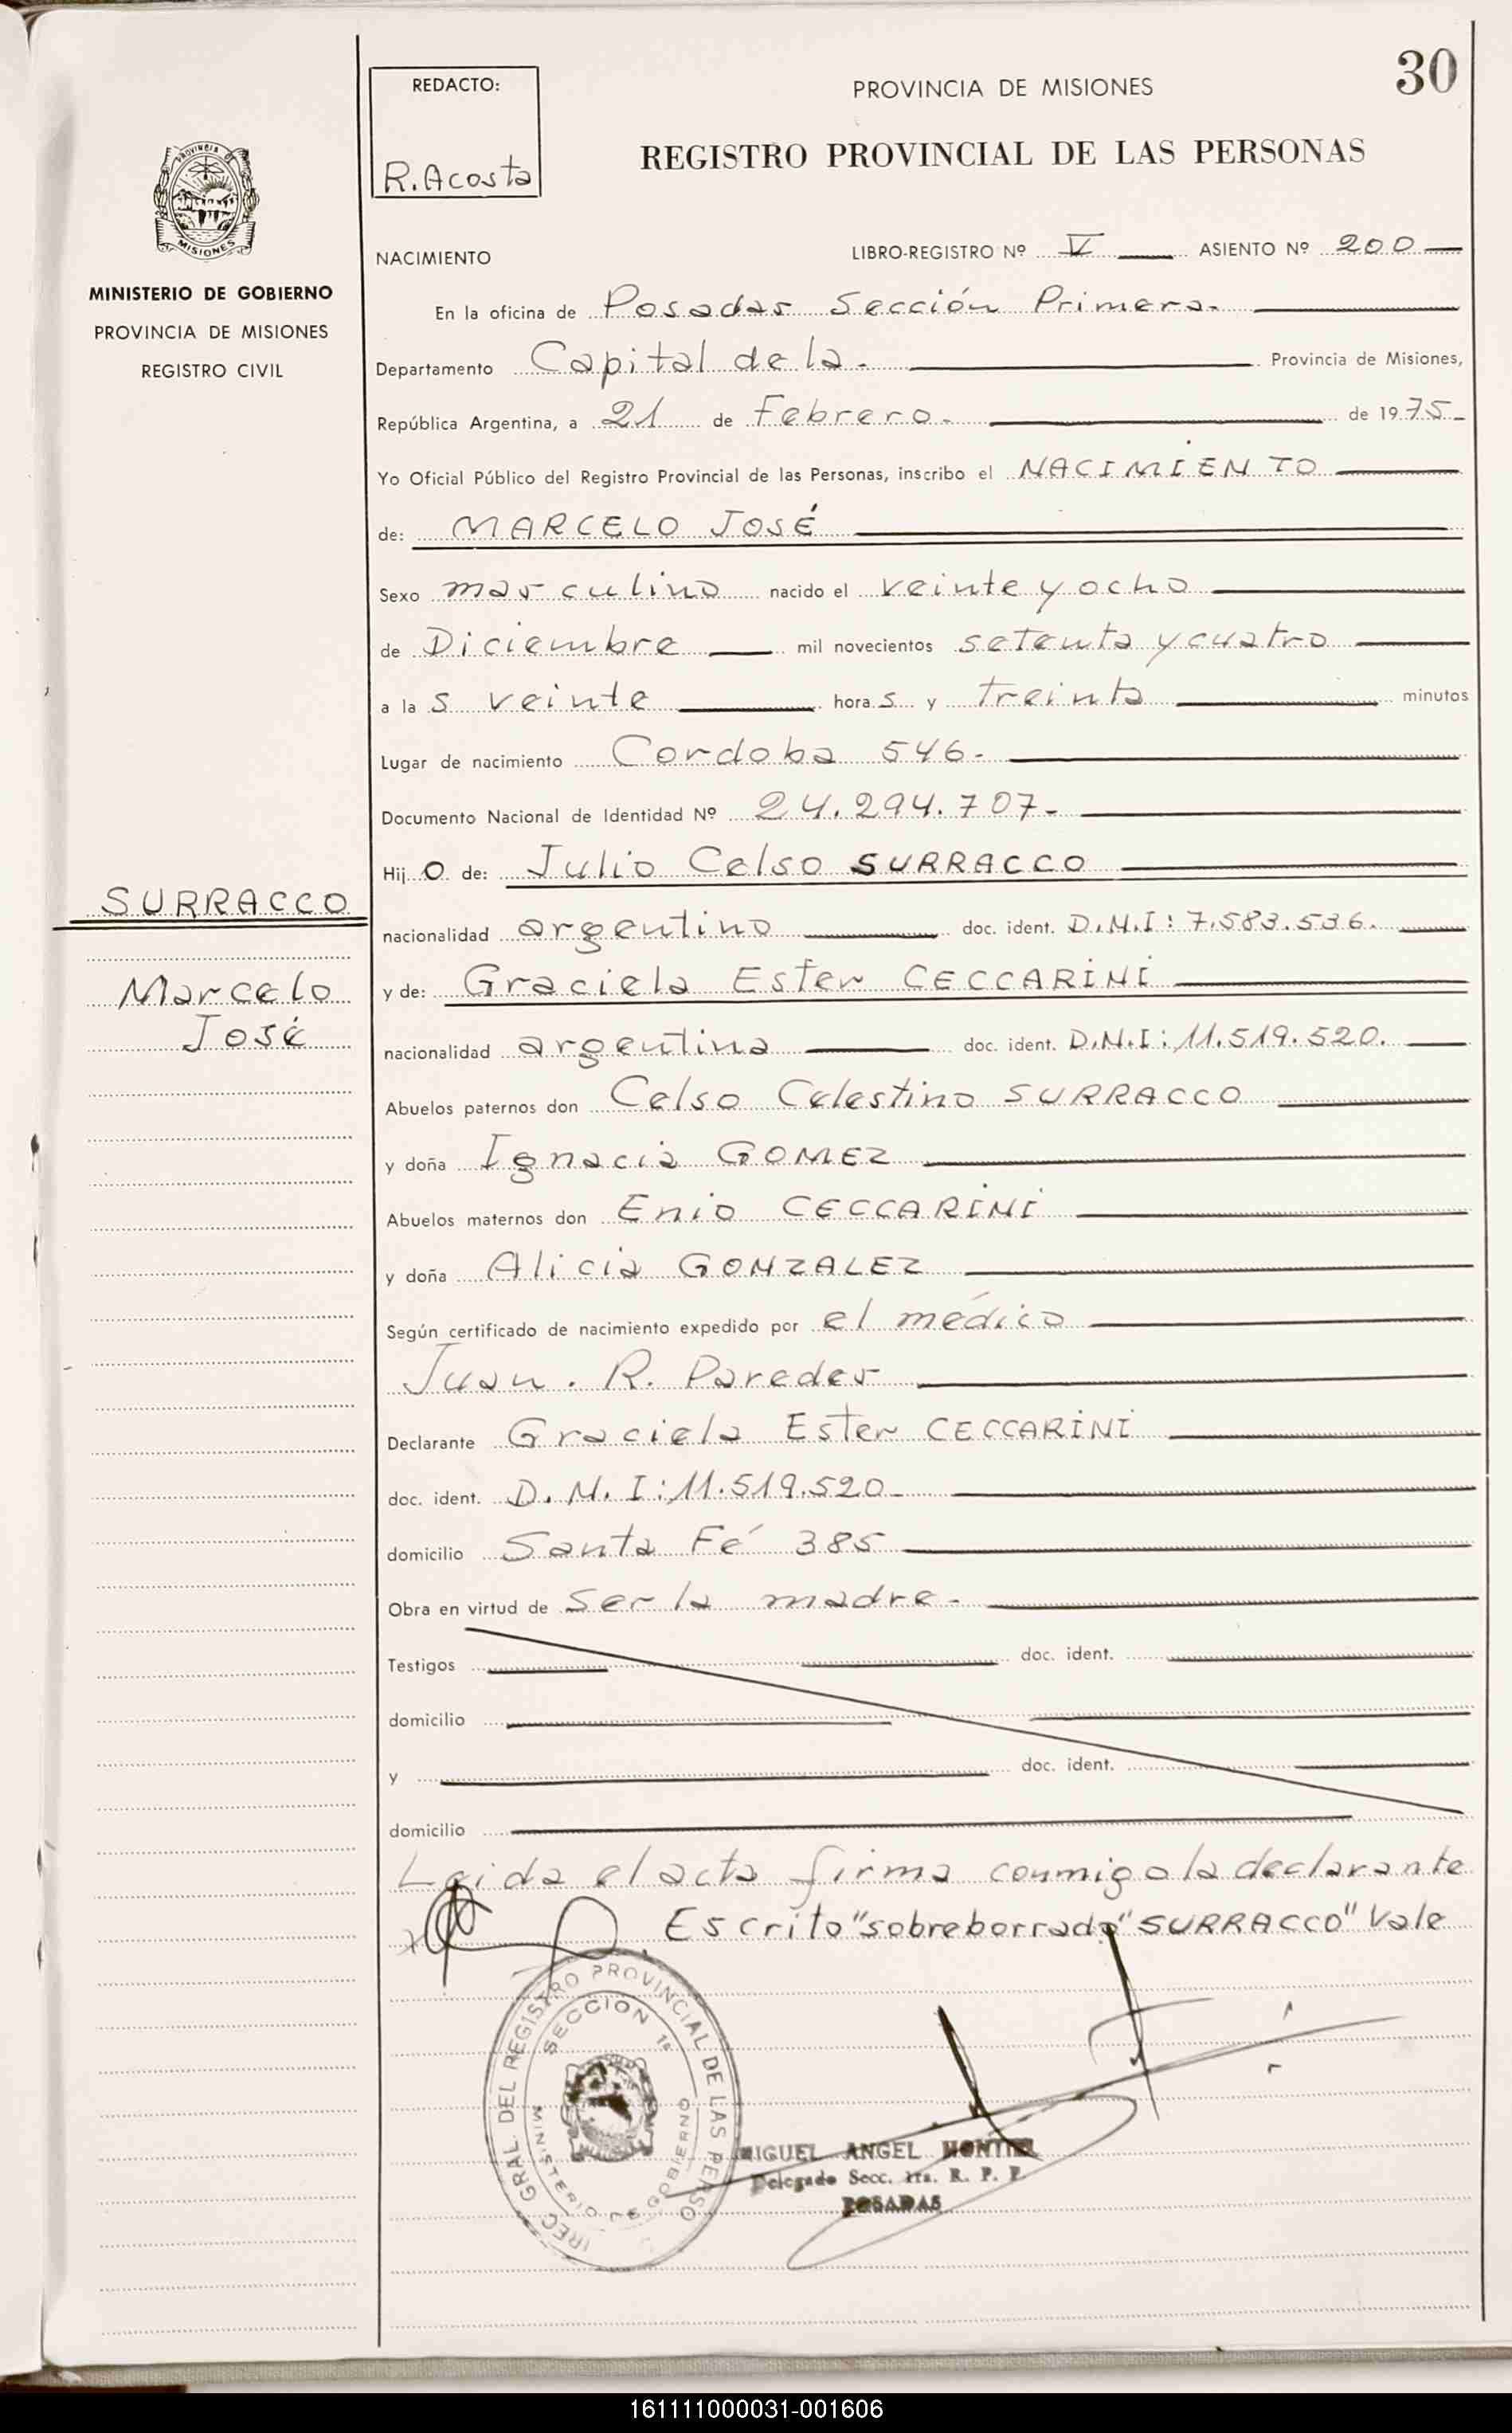 30
REDACTO:
R. Acosta
PROVINCIA DE MISIONES
REGISTRO PROVINCIAL DE LAS PERSONAS
PROVINCIA DE
MISIONES
MINISTERIO DE GOBIERNO
PROVINCIA DE MISIONES
REGISTRO CIVIL
NACIMIENTO
LIBRO-REGISTRO Nº V ASIENTO Nº 200
En la oficina de Posadas Sección Primera.
Departamento Capital de la. Provincia de Misiones,
República Argentina, a 21 de Febrero. de 1975
Yo Oficial Público del Registro Provincial de las Personas, inscribo el NACIMIENTO
de: MARCELO JOSÉ
Sexo masculino nacido el veinte y ocho
de Diciembre mil novecientos setenta y cuatro
a las veinte horas y treinta minutos
Lugar de nacimiento Cordoba 546.
Documento Nacional de Identidad Nº 24.294.707.
Hijo de: Julio Celso SURRACCO
SURRACCO
nacionalidad argentino doc. ident. D.N.I: 7.583.536.
Marcelo
José
y de: Graciela Ester CECCARINI
nacionalidad argentina doc. ident. D.N.I: 11.519.520.
Abuelos paternos don Celso Celestino SURRACCO
y doña Ignacia GOMEZ
Abuelos maternos don Enio CECCARINI
y doña Alicia GONZALEZ
Según certificado de nacimiento expedido por el médico
Juan. R. Paredes
Declarante Graciela Ester CECCARINI
doc. ident. D.N.I: 11.519.520
domicilio Santa Fé 385
Obra en virtud de ser la madre.
Testigos doc. ident.
domicilio
y doc. ident.
domicilio
Leida el acta firma conmigo la declarante
Escrito "sobreborrado" "SURRACCO" Vale
DEL REGISTRO PROVINCIAL DE LAS PERSO
GRAL.
SECCIÓN 1a
MINISTERIO DE GOBIERNO
MIGUEL ANGEL MONTIEL
Delegado Secc. 1ra. R. P. P.
POSADAS
161111000031-001606